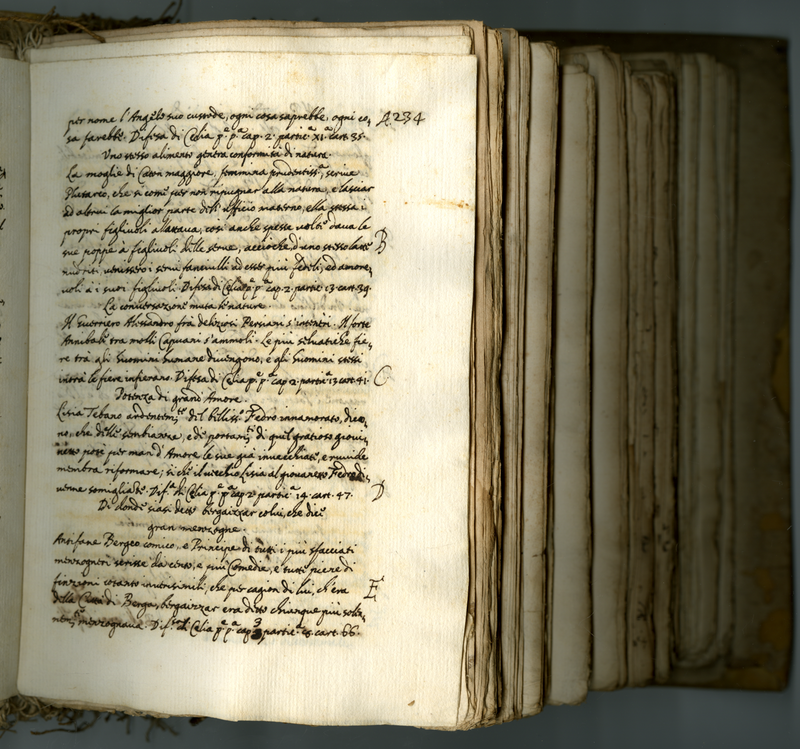 per nome l'Angelo suo custode, ogni cosa saprebbe, ogni co- A 234
sa farebbe. Difesa di Celia pᵉ pᵃ cap. 2. particᵃ XI. cart. 35.
Uno stesso alimento genera conformità di natura.
La moglie di Caton maggiore, femmina prudentissᵃ, scrive
Plutarco, che sì come per non ripugnar alla natura, e lasciar
ad altrui la miglior parte dell' ufficio materno, ella stessa i
propri figliuoli allattava, così anche spesse volte dava le
sue poppe à figliuoli delle serve, acciochè d'uno stesso latte B
nudriti, venissero i servi fanciulli ad esser più fedeli, ed amore-
voli à i suoi figliuoli. Difesa di Celia pᵉ pᵃ cap. 2. partic. 13. cart. 39.
La conversazione muta le nature.
Il Guerriero Alessandro frà deliziosi Persiani s'intenerì. Il forte
Annibale tra molli Capuani s'ammollì. Le più selvatiche fie-
re trà gli Huomini humane divengono, e gli Huomini stessi
intrà le fiere infierano. Difesa di Celia pᵉ pᵃ cap. 2. particᵃ 13. cart. 41. C
Potenza di grand' Amore.
Lisia Tebano ardentemᵗᵉ del bellissᵒ Fedro innamorato, dico-
no, che delle sembianze, e di portamᵗⁱ di quel gratioso giovi-
netto potè per man d'Amore le sue già invecchiate, e ruvide
membra riformare; sì che il vecchio Lisia al giovanetto Fedro di-
venne somigliante. Difᵃ di Celia pᵉ pᵃ cap. 2. particᵃ 14. cart. 47. D
Di donde siasi detto bergaizzar colui, che dice
gran menzogne.
Antifane Bergeo comico, e Principe di tutti i più sfacciati
menzogneri scrisse da cento, e più Comedie, e tutte piene di
finzioni cotanto inverisimili, che per cagion di lui, ch'era E
della Città di Berga, bergaizzar era detto chiunque più solen-
nemᵗᵉ menzognava. Difᵃ di Celia pᵉ pᵃ cap. 3 particᵃ 8. cart. 66.